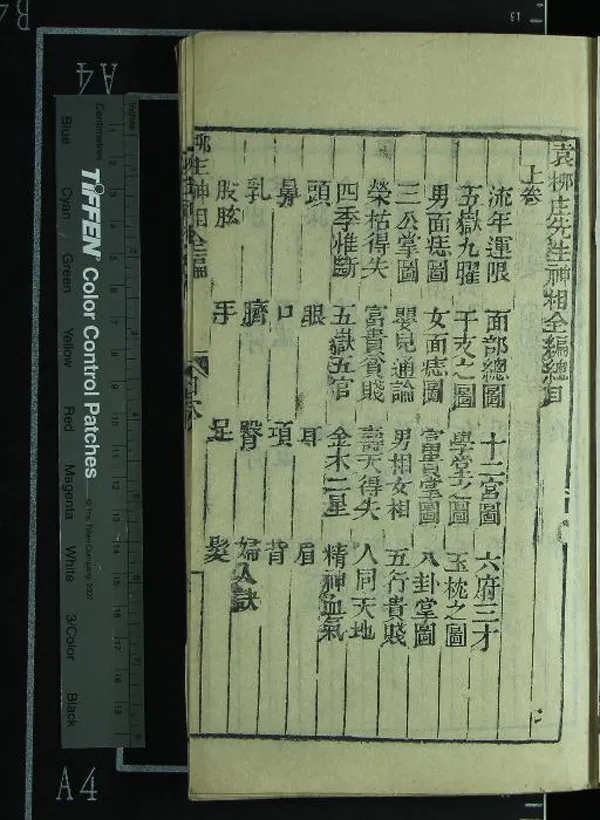 袁柳庄先生神相全編總目
上卷
流年運限 面部總圖 十二宮圖 六府三才
五嶽九曜 干支之圖 學堂之圖 玉枕之圖
男面痣圖 女面痣圖 富貴掌圖 八卦掌圖
三公掌圖 嬰兒通論 男相女相 五行貴賤
榮枯得失 富貴貧賤 壽夭得失 人同天地
四季惟斷 五嶽五官 金木二星 精神血氣
頭 眼 耳 眉
鼻 口 項 背
乳 臍 臀 婦人訣
股肱 手 足 髮
柳庄神相全編
A4
A4
B4
13
TIFFEN Color Control Patches
© The Tiffen Company, 2007
Centimetres
Inches
Blue
Cyan
Green
Yellow
Red
Magenta
White
3/Color
Black